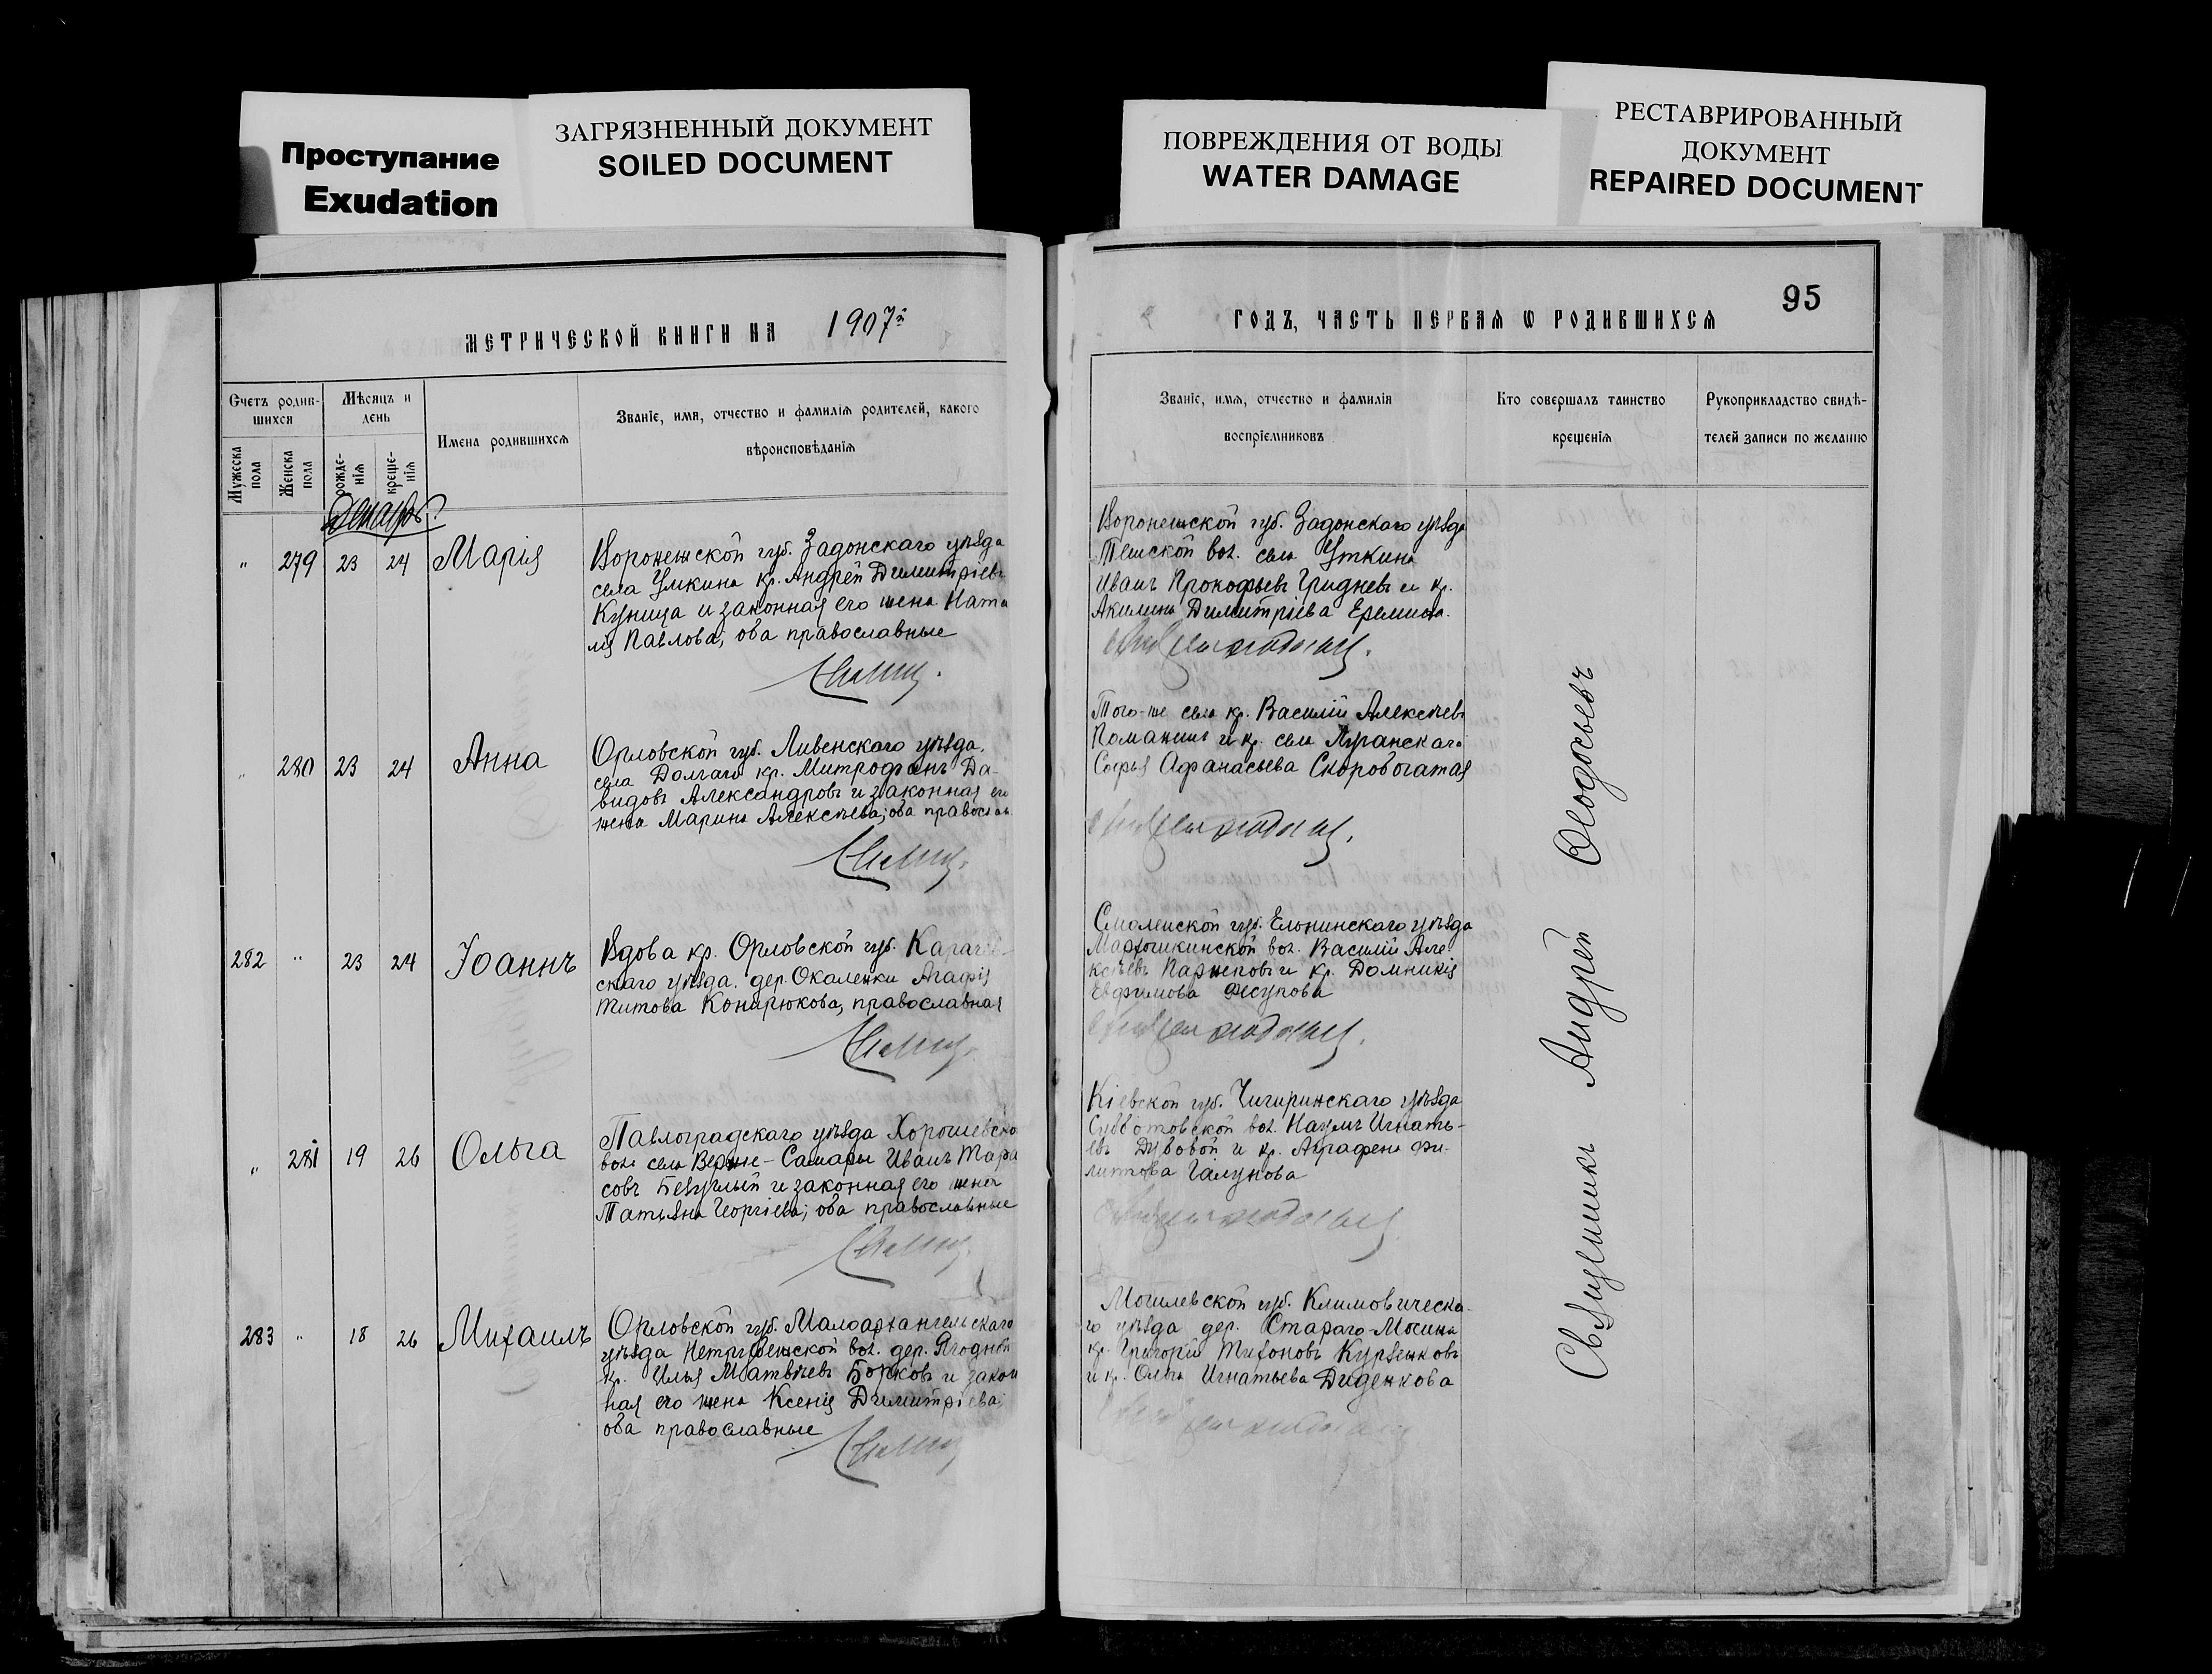 Проступание
Exudation
ЗАГРЯЗНЕННЫЙ ДОКУМЕНТ
SOILED DOCUMENT
ПОВРЕЖДЕНИЯ ОТ ВОДЫ
WATER DAMAGE
РЕСТАВРИРОВАННЫЙ
ДОКУМЕНТ
REPAIRED DOCUMENT
МЕТРИЧЕСКОЙ КНИГИ НА 1907
Счетъ родив-
шихся
Мужеска
пола
Женска
пола
Мѣсяцъ и
день
рожде-
нія
креще-
нія
Имена родившихся
Званіе, имя, отчество и фамилія родителей, какого
вѣроисповѣданія
Декабрь
" 279 23 24 Марія
Воронежской губ. Задонскаго уѣзда
села Уткина кр. Андрей Димитріевъ
Куница и законная его жена Ната
лія Павлова, оба православные
" 280 23 24 Анна
Орловской губ. Ливенскаго уѣзда,
села Долгаго кр. Митрофанъ Да-
видовъ Александровъ и законная его
жена Марина Алексѣева; оба правосла
282 " 23 24 Іоаннъ
Вдова кр. Орловской губ. Карачев-
скаго уѣзда. дер. Окаленки Агафія
Титова Конирюкова, православная
" 281 19 26 Ольга
Павлоградскаго уѣзда
вол. села Верхне-Самары Иванъ Тара
совъ Безуглый и законная его жена
Татьяна Георгіева; оба православные
283 " 18 26 Михаилъ
Орловской губ. Малоархангельскаго
уѣзда вол. дер. Ягодной
кр. Илья Матвѣевъ Борковъ и закон
ная его жена Ксенія Димитріева;
оба православные
95
ГОДЪ, ЧАСТЬ ПЕРВАЯ Ѡ РОДИВШИХСЯ
Званіе, имя, отчество и фамилія
воспріемниковъ
Кто совершалъ таинство
крещенія
Рукоприкладство свидѣ-
телей записи по желанію
Воронежской губ. Задонскаго уѣзда
вол. села Уткина
Иванъ Прокофьевъ Гридневъ и кр.
Акилина Димитріева Еремина.
Того-же села кр. Василій Алексѣевъ
и кр. села Луганскаго
Софья Афанасьева Скоробогатая
Смоленской губ. Ельнинскаго уѣзда
вол. Василій Але-
ксѣевъ и кр. Домникія
Евфимова Фесунова
Кіевской губ. Чигиринскаго уѣзда
Субботовской вол. Наумъ Игнать-
евъ Дубовой и кр. Аграфена Фи-
липпова Галунова
Могилевской губ. Климовическа-
го уѣзда дер. Стараго-Мосина
кр. Григорій Тихоновъ
и кр. Ольга Игнатьева Диденкова
Священникъ Андрей Ѳеодосьевъ